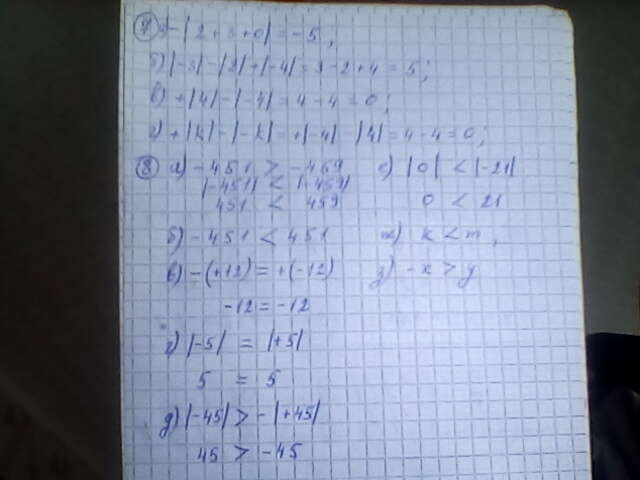 ⑦ а) -|2+3+0| = -5;
б) |-3| - |2| + |-4| = 3 - 2 + 4 = 5;
в) +|4| - |-4| = 4 - 4 = 0;
г) +|k| - |-k| = +|-4| - |4| = 4 - 4 = 0;
⑧ а) -451 > -459
|-451| < |-459|
451 < 459
б) -451 < 451
в) -(+12) = +(-12)
-12 = -12
г) |-5| = |+5|
5 = 5
д) |-45| > -|+45|
45 > -45
е) |0| < |-21|
0 < 21
ж) k < m,
з) -x > y